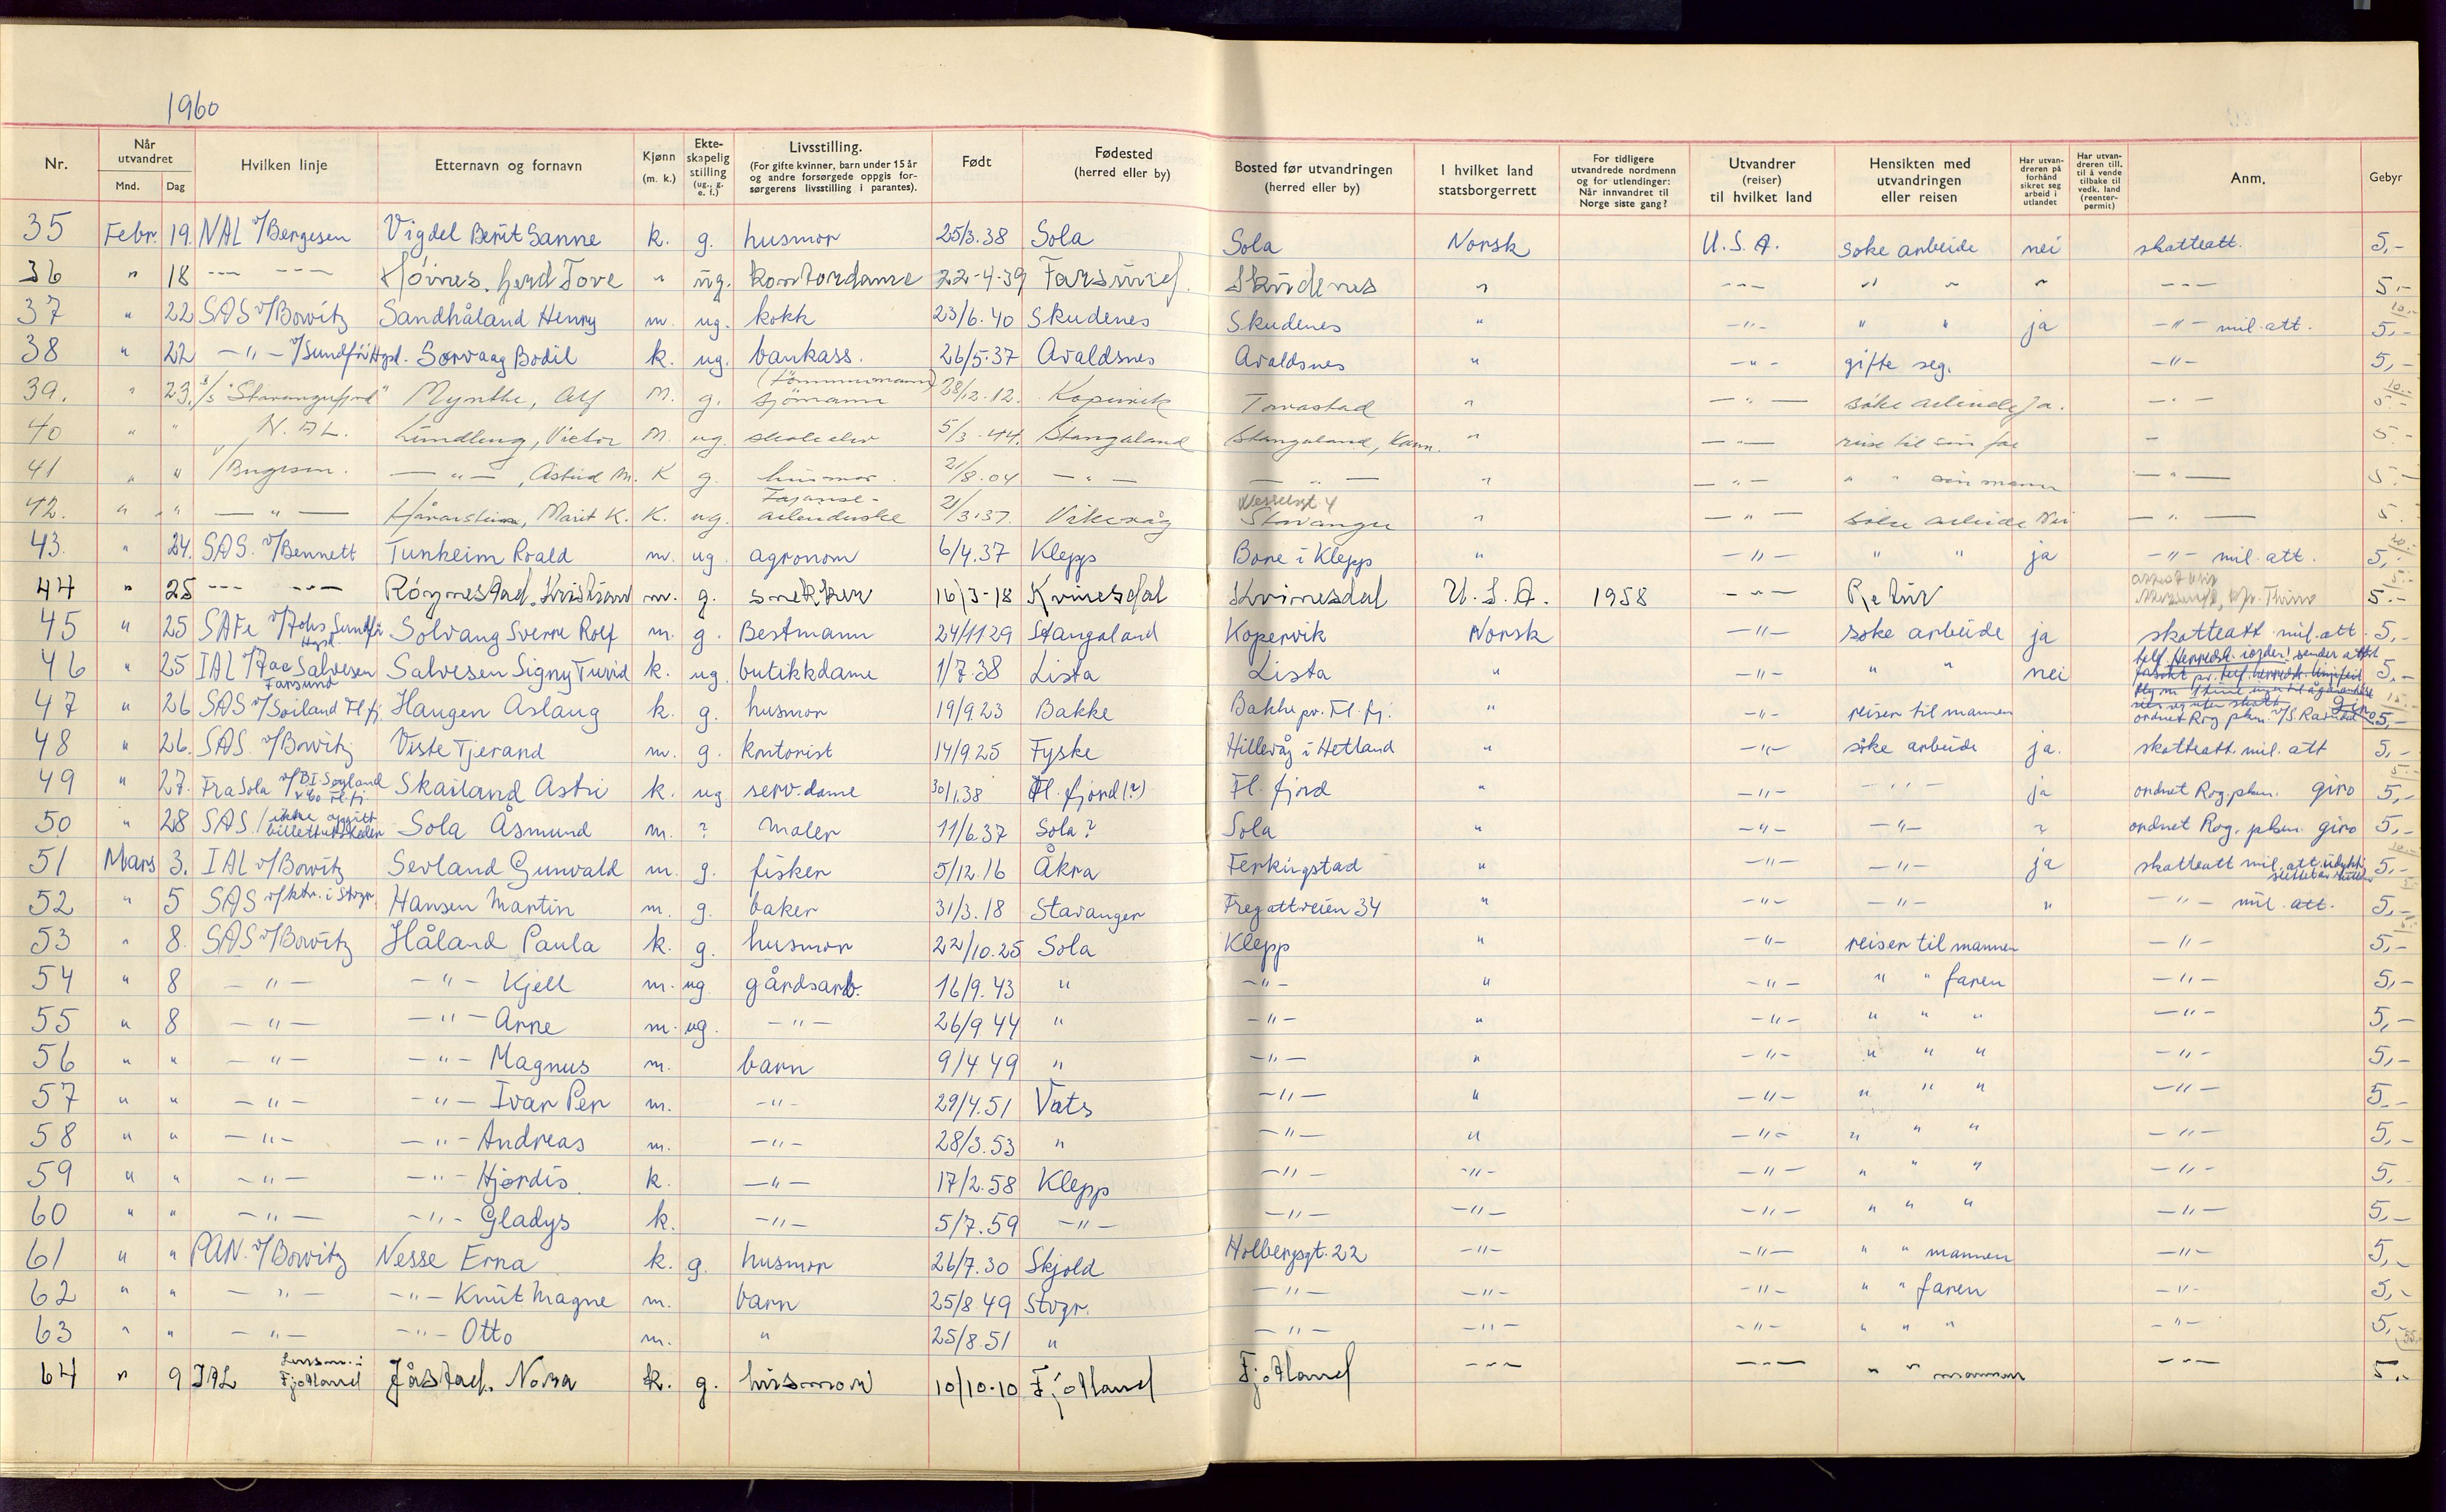 1960
Nr. Når utvandret Mnd. Dag Hvilken linje Etternavn og fornavn Kjønn (m. k.) Ekteskapelig stilling (ug., g. e. f.) Livsstilling. (For gifte kvinner, barn under 15 år og andre forsørgede oppgis forsørgerens livsstilling i parantes). Født Fødested (herred eller by) Bosted før utvandringen (herred eller by) I hvilket land statsborgerrett For tidligere utvandrede nordmenn og for utlendinger: Når innvandret til Norge siste gang? Utvandrer (reiser) til hvilket land Hensikten med utvandringen eller reisen Har utvandreren på forhånd sikret seg arbeid i utlandet Har utvandreren till. til å vende tilbake til vedk. land (reenterpermit) Anm. Gebyr
35 Febr. 19. NAL v/Bergesen Vigdel Berit Sanne k. g. husmor 25/3.38 Sola Sola Norsk U.S.A. søke arbeide nei skatteatt. 5,-
36 " 18 --- --- Høines, Gerd Tove " ug. kontordame 22-4-39 Farsund. Skudenes " --- " " " --- 5.-
37 " 22 SAS v/Bowitz Sandhåland Henry m. ug. kokk 23/6.40 Skudenes Skudenes " -"- " " ja -"- mil. att. 5,-
38 " 22 -"- v/Sundfør Hgsd. Sørvaag Bodil k. ug. bankass. 26/5.37 Avaldsnes Avaldsnes " -"- gifte seg. -"- 5,-
39. " 23. s/s "Stavangerfjord" Mynthe, Alf M. g. (tømmermann) sjømann 28/12.12. Kopervik Torvastad " -"- søke arbeide Ja. -"- 5.-
40 " " N.A.L. Lundberg, Victor M. ug. skoleelev 5/3.44. Stangaland Stangaland, Karm. " -"- reise til sin far - 5.-
41 " " v/Bergesen. -"-, Astrid M. K g. husmor. 21/8.04 -"- -"- " -"- " " sin mann -"- 5.-
42. " " -"- Marit K. K. ug. Fajanse-arbeiderske 21/3.37. Vikevåg Wesselsgt. 4 Stavanger " -"- søke arbeide Nei -"- 5.
43. " 24. SAS. v/Bennett Tunheim Roald m. ug. agronom 6/4.37 Klepp Bore i Klepp " -"- " " ja -"- mil. att. 5,-
44 " 25 --- --- Røynestad, Kristian m. g. snekker 16/3-18 Kvinesdal Kvinesdal U.S.A. 1958 --- Retur 5.-
45 " 25 SAFe v/Johs Sundfør Hgsd. Solvang Sverre Rolf m. g. Bestmann 24/11 29 Stangaland Kopervik Norsk -"- søke arbeide ja skatteatt. mil. att. 5,-
46 " 25 IAL v/Aae Salvesen Farsund Salvesen Signy Turid k. ug. butikkdame 1/7.38 Lista Lista " -"- " " nei 5,-
47 " 26 SAS v/Soiland Fl.fj. Haugen Aslaug k. g. husmor 19/9.23 Bakke Bakke pr. Fl.fj. " -"- reiser til mannen ordnet Rog. pkm. Giro 5,-
48 " 26. SAS. v/Bowitz Viste Tjerand m. g. kontorist 14/9.25 Fyske Hillevåg i Hetland " -"- søke arbeide ja. skatteatt. mil. att 5,-
49 " 27. Fra Sola v/BI. Søyland Fl.fj. Skailand Astri k. ug serv.dame 30/1.38 Fl.fjord (?) Fl.fjord " -"- -"- ja ordnet Rog. pkm. giro 5,-
50 " 28 SAS / ikke oppgitt billettutsteder Sola Åsmund m. ? maler 11/6.37 Sola? Sola " -"- -"- ? ordnet Rog. pkm. giro 5,-
51 Mars 3. IAL v/Bowitz Sevland Gunvald m. g. fisker 5/12.16 Åkra Ferkingstad " -"- -"- ja skatteatt mil. att. 5,-
52 " 5 SAS v/ktr. i Stvgr. Hansen Martin m. g. baker 31/3.18 Stavanger Fregattveien 34 " -"- -"- " -"- mil. att. 5,-
53 " 8. SAS v/Bowitz Håland Paula k. g. husmor 22/10.25 Sola Klepp " -"- reiser til mannen -"- 5,-
54 " 8 -"- -"- Kjell m. ug. gårdsarb. 16/9.43 " -"- " -"- " " faren -"- 5,-
55 " 8 -"- -"- Arne m. ug. -"- 26/9 44 " -"- " -"- " " " -"- 5,-
56 " " -"- -"- Magnus m. barn 9/4 49 " -"- " -"- " " " -"- 5,-
57 " " -"- -"- Ivar Per m. -"- 29/4.51 Vats -"- " -"- " " " -"- 5,-
58 " " -"- -"- Andreas m. -"- 28/3.53 " -"- " -"- " " " -"- 5,-
59 " " -"- -"- Hjørdis. k. -"- 17/2.58 Klepp -"- -"- -"- " " " -"- 5,-
60 " " -"- -"- Gladys k. -"- 5/7.59 -"- -"- -"- -"- " " " -"- 5,-
61 " " PAN. v/Bowitz Nesse Erna k. g. husmor 26/7.30 Skjold Holbergsgt. 22 -"- -"- " " mannen -"- 5,-
62 " " -"- -"- Knut Magne m. barn 25/8.49 Stvgr. -"- -"- -"- " " faren -"- 5,-
63 " " -"- -"- Otto m. " 25/8.51 " -"- -"- -"- " " " -"- 5,-
64 " 9 IAL Lensm. i Fjotland Jåstad, Nora k. g. husmor 10/10-10 Fjotland Fjotland --- --- " " mannen --- 5.-